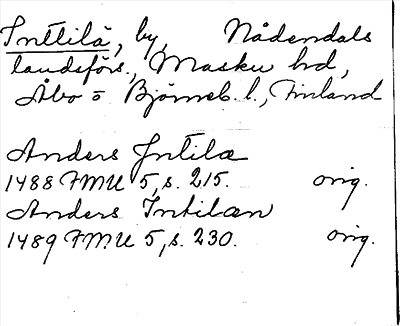 Inttilä, by, Nådendals
landsförs., Masku hd,
Åbo o Björneb. l., Finland
Anders Intila
1488 FMU 5, s. 215. orig.
Anders Intilan
1489 FMU 5, s. 230. orig.